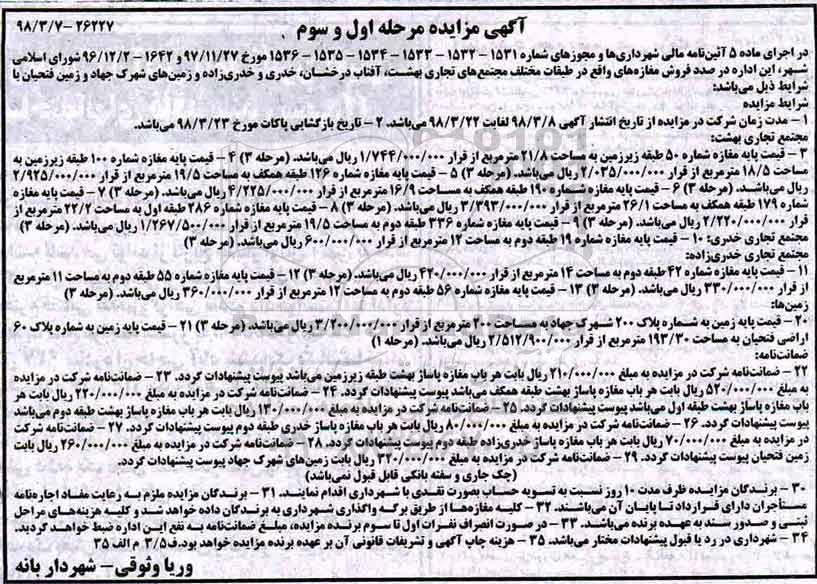 آگهی مزایده مرحله اول و سوم
۹۸/۳/۷-۲۶۲۲۷
در اجرای ماده ۵ آئین‌نامه مالی شهرداری‌ها و مجوزهای شماره ۱۵۳۱ - ۱۵۳۲ - ۱۵۳۳ - ۱۵۳۴ - ۱۵۳۵ - ۱۵۳۶ مورخ ۹۷/۱۱/۲۷ و ۱۶۴۲ - ۹۶/۱۲/۲ شورای اسلامی
شهر، این اداره در صدد فروش مغازه‌های واقع در طبقات مختلف مجتمع‌های تجاری بهشت، آفتاب درخشان، خدری و خدری‌زاده و زمین‌های شهرک جهاد و زمین فتحیان با
شرایط ذیل می‌باشد:
شرایط مزایده
۱ - مدت زمان شرکت در مزایده از تاریخ انتشار آگهی ۹۸/۳/۸ لغایت ۹۸/۳/۲۲ می‌باشد. ۲ - تاریخ بازگشایی پاکات مورخ ۹۸/۳/۲۳ می‌باشد.
مجتمع تجاری بهشت:
۳ - قیمت پایه مغازه شماره ۵۰ طبقه زیرزمین به مساحت ۲۱/۸ مترمربع از قرار ۱/۷۴۴/۰۰۰/۰۰۰ ریال می‌باشد. (مرحله ۳) ۴ - قیمت پایه مغازه شماره ۱۰۰ طبقه زیرزمین به
مساحت ۱۸/۵ مترمربع از قرار ۲/۰۳۵/۰۰۰/۰۰۰ ریال می‌باشد. (مرحله ۳) ۵ - قیمت پایه مغازه شماره ۱۲۶ طبقه همکف به مساحت ۱۹/۵ مترمربع از قرار ۲/۹۲۵/۰۰۰/۰۰۰
ریال می‌باشد. (مرحله ۳) ۶ - قیمت پایه مغازه شماره ۱۹۰ طبقه همکف به مساحت ۱۶/۹ مترمربع از قرار ۴/۲۲۵/۰۰۰/۰۰۰ ریال می‌باشد. (مرحله ۳) ۷ - قیمت پایه مغازه
شماره ۱۷۹ طبقه همکف به مساحت ۲۶/۱ مترمربع از قرار ۳/۳۹۳/۰۰۰/۰۰۰ ریال می‌باشد. (مرحله ۳) ۸ - قیمت پایه مغازه شماره ۲۸۶ طبقه اول به مساحت ۲۲/۲ مترمربع از
قرار ۲/۲۲۰/۰۰۰/۰۰۰ ریال می‌باشد. (مرحله ۳) ۹ - قیمت پایه مغازه شماره ۳۳۶ طبقه دوم به مساحت ۱۹/۵ مترمربع از قرار ۱/۲۶۷/۵۰۰/۰۰۰ ریال می‌باشد. (مرحله ۳)
مجتمع تجاری خدری: ۱۰ - قیمت پایه مغازه شماره ۱۹ طبقه دوم به مساحت ۱۲ مترمربع از قرار ۶۰۰/۰۰۰/۰۰۰ ریال می‌باشد. (مرحله ۳)
مجتمع تجاری خدری‌زاده:
۱۱ - قیمت پایه مغازه شماره ۴۲ طبقه دوم به مساحت ۱۴ مترمربع از قرار ۴۲۰/۰۰۰/۰۰۰ ریال می‌باشد. (مرحله ۳) ۱۲ - قیمت پایه مغازه شماره ۵۵ طبقه دوم به مساحت ۱۱ مترمربع
از قرار ۳۳۰/۰۰۰/۰۰۰ ریال می‌باشد. (مرحله ۳) ۱۳ - قیمت پایه مغازه شماره ۵۶ طبقه دوم به مساحت ۱۲ مترمربع از قرار ۳۶۰/۰۰۰/۰۰۰ ریال می‌باشد. (مرحله ۳)
زمین‌ها:
۲۰ - قیمت پایه زمین به شماره پلاک ۲۰۰ شهرک جهاد به مساحت ۲۰۰ مترمربع از قرار ۳/۲۰۰/۰۰۰/۰۰۰ ریال می‌باشد. (مرحله ۳) ۲۱ - قیمت پایه زمین به شماره پلاک ۶۰
اراضی فتحیان به مساحت ۱۹۳/۳۰ مترمربع از قرار ۲/۵۱۲/۹۰۰/۰۰۰ ریال می‌باشد. (مرحله ۱)
ضمانت‌نامه:
۲۲ - ضمانت‌نامه شرکت در مزایده به مبلغ ۲۱۰/۰۰۰/۰۰۰ ریال بابت هر باب مغازه پاساژ بهشت طبقه زیرزمین می‌باشد پیوست پیشنهادات گردد. ۲۳ - ضمانت‌نامه شرکت در مزایده
به مبلغ ۵۲۰/۰۰۰/۰۰۰ ریال بابت هر باب مغازه پاساژ بهشت طبقه همکف می‌باشد پیوست پیشنهادات گردد. ۲۴ - ضمانت‌نامه شرکت در مزایده به مبلغ ۲۲۰/۰۰۰/۰۰۰ ریال بابت هر
باب مغازه پاساژ بهشت طبقه اول می‌باشد پیوست پیشنهادات گردد. ۲۵ - ضمانت‌نامه شرکت در مزایده به مبلغ ۱۳۰/۰۰۰/۰۰۰ ریال بابت هر باب مغازه پاساژ بهشت طبقه دوم می‌باشد
پیوست پیشنهادات گردد. ۲۶ - ضمانت‌نامه شرکت در مزایده به مبلغ ۸۰/۰۰۰/۰۰۰ ریال بابت هر باب مغازه پاساژ خدری طبقه دوم پیوست پیشنهادات گردد. ۲۷ - ضمانت‌نامه شرکت
در مزایده به مبلغ ۷۰/۰۰۰/۰۰۰ ریال بابت هر باب مغازه پاساژ خدری‌زاده طبقه دوم پیوست پیشنهادات گردد. ۲۸ - ضمانت‌نامه شرکت در مزایده به مبلغ ۲۶۰/۰۰۰/۰۰۰ ریال بابت
زمین فتحیان پیوست پیشنهادات گردد. ۲۹ - ضمانت‌نامه شرکت در مزایده به مبلغ ۳۲۰/۰۰۰/۰۰۰ ریال بابت زمین‌های شهرک جهاد پیوست پیشنهادات گردد.
(چک جاری و سفته بانکی قابل قبول نمی‌باشد)
۳۰ - برندگان مزایده ظرف مدت ۱۰ روز نسبت به تسویه حساب بصورت نقدی با شهرداری اقدام نمایند. ۳۱ - برندگان مزایده ملزم به رعایت مفاد اجاره‌نامه
مستأجران دارای قرارداد تا پایان آن می‌باشند. ۳۲ - کلیه مغازه‌ها از طریق برگه واگذاری شهرداری به برندگان داده خواهد شد و کلیه هزینه‌های مراحل
ثبتی و صدور سند به عهده برنده می‌باشد. ۳۳ - در صورت انصراف نفرات اول تا سوم برنده مزایده، مبلغ ضمانت‌نامه به نفع این اداره ضبط خواهد گردید.
۳۴ - شهرداری در رد یا قبول پیشنهادات مختار می‌باشد. ۳۵ - هزینه چاپ آگهی و تشریفات قانونی آن بر عهده برنده مزایده خواهد بود.ف۳/۵ م الف ۳۵
وریا وثوقی- شهردار بانه